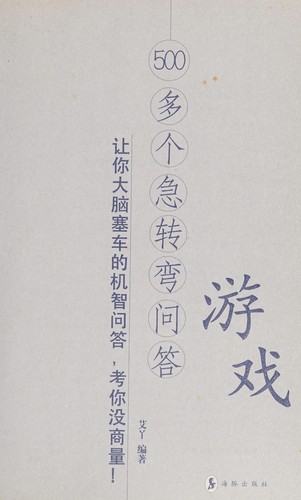 500多个急转弯问答
游戏
让你大脑塞车的机智问答，考你没商量！
艾丫 编著
海豚出版社